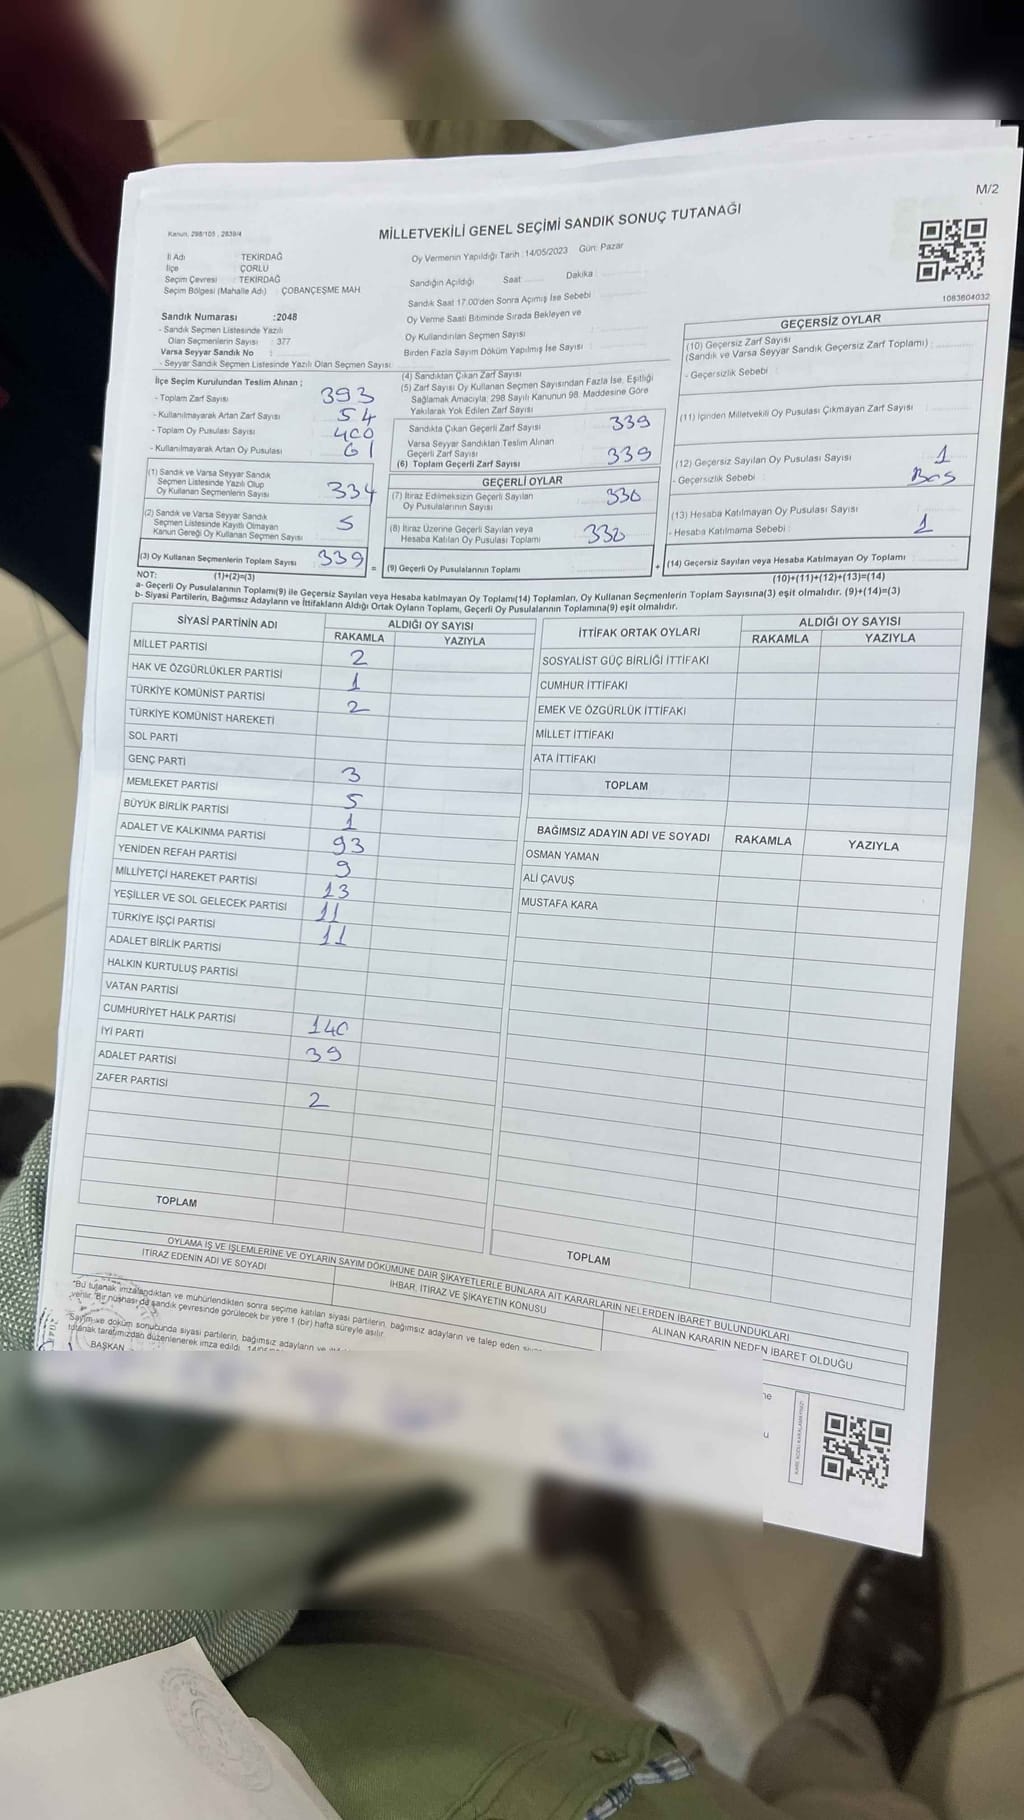 M/2
Kanun, 298/105 , 2839/4
MİLLETVEKİLİ GENEL SEÇİMİ SANDIK SONUÇ TUTANAĞI
İl Adı TEKİRDAĞ
İlçe ÇORLU
Seçim Çevresi : TEKİRDAĞ
Seçim Bölgesi (Mahalle Adı) : ÇOBANÇEŞME MAH
Sandık Numarası :2048
- Sandık Seçmen Listesinde Yazılı
Olan Seçmenlerin Sayısı : 377
Varsa Seyyar Sandık No :
- Seyyar Sandık Seçmen Listesinde Yazılı Olan Seçmen Sayısı:
İlçe Seçim Kurulundan Teslim Alınan ;
- Toplam Zarf Sayısı 393
- Kullanılmayarak Artan Zarf Sayısı 54
- Toplam Oy Pusulası Sayısı 400
- Kullanılmayarak Artan Oy Pusulası 61
(1) Sandık ve Varsa Seyyar Sandık
Seçmen Listesinde Yazılı Olup
Oy Kullanan Seçmenlerin Sayısı 334
(2) Sandık ve Varsa Seyyar Sandık
Seçmen Listesinde Kayıtlı Olmayan
Kanun Gereği Oy Kullanan Seçmen Sayısı 5
(3) Oy Kullanan Seçmenlerin Toplam Sayısı 339 =
Oy Vermenin Yapıldığı Tarih :14/05/2023 Gün: Pazar
Sandığın Açıldığı Saat Dakika :
Sandık Saat 17.00'den Sonra Açımış İse Sebebi
Oy Verme Saati Bitiminde Sırada Bekleyen ve
Oy Kullandırılan Seçmen Sayısı
Birden Fazla Sayım Döküm Yapılmış İse Sayısı :
(4) Sandıktan Çıkan Zarf Sayısı
(5) Zarf Sayısı Oy Kullanan Seçmen Sayısından Fazla İse, Eşitliği
Sağlamak Amacıyla; 298 Sayılı Kanunun 98. Maddesine Göre
Yakılarak Yok Edilen Zarf Sayısı
Sandıkta Çıkan Geçerli Zarf Sayısı 339
Varsa Seyyar Sandıktan Teslim Alınan
Geçerli Zarf Sayısı
(6) Toplam Geçerli Zarf Sayısı 339
GEÇERLİ OYLAR
(7) İtiraz Edilmeksizin Geçerli Sayılan
Oy Pusulalarının Sayısı 330
(8) İtiraz Üzerine Geçerli Sayılan veya
Hesaba Katılan Oy Pusulası Toplamı 330
(9) Geçerli Oy Pusulalarının Toplamı +
1083604032
GEÇERSİZ OYLAR
(10) Geçersiz Zarf Sayısı
(Sandık ve Varsa Seyyar Sandık Geçersiz Zarf Toplamı) :
- Geçersizlik Sebebi :
(11) İçinden Milletvekili Oy Pusulası Çıkmayan Zarf Sayısı
(12) Geçersiz Sayılan Oy Pusulası Sayısı 1
- Geçersizlik Sebebi : Boş
(13) Hesaba Katılmayan Oy Pusulası Sayısı
- Hesaba Katılmama Sebebi : 1
(14) Geçersiz Sayılan veya Hesaba Katılmayan Oy Toplamı
NOT: (1)+(2)=(3) (10)+(11)+(12)+(13)=(14)
a- Geçerli Oy Pusulalarının Toplamı(9) ile Geçersiz Sayılan veya Hesaba katılmayan Oy Toplamı(14) Toplamları, Oy Kullanan Seçmenlerin Toplam Sayısına(3) eşit olmalıdır. (9)+(14)=(3)
b- Siyasi Partilerin, Bağımsız Adayların ve İttifakların Aldığı Ortak Oyların Toplamı, Geçerli Oy Pusulalarının Toplamına(9) eşit olmalıdır.
SİYASİ PARTİNİN ADI ALDIĞI OY SAYISI
RAKAMLA YAZIYLA
MİLLET PARTİSİ 2
HAK VE ÖZGÜRLÜKLER PARTİSİ 1
TÜRKİYE KOMÜNİST PARTİSİ 2
TÜRKİYE KOMÜNİST HAREKETİ
SOL PARTİ
GENÇ PARTİ 3
MEMLEKET PARTİSİ 5
BÜYÜK BİRLİK PARTİSİ 1
ADALET VE KALKINMA PARTİSİ 93
YENİDEN REFAH PARTİSİ 9
MİLLİYETÇİ HAREKET PARTİSİ 13
YEŞİLLER VE SOL GELECEK PARTİSİ 11
TÜRKİYE İŞÇİ PARTİSİ 11
ADALET BİRLİK PARTİSİ
HALKIN KURTULUŞ PARTİSİ
VATAN PARTİSİ
CUMHURİYET HALK PARTİSİ 140
İYİ PARTİ 39
ADALET PARTİSİ
ZAFER PARTİSİ 2
TOPLAM
İTTİFAK ORTAK OYLARI ALDIĞI OY SAYISI
RAKAMLA YAZIYLA
SOSYALİST GÜÇ BİRLİĞİ İTTİFAKI
CUMHUR İTTİFAKI
EMEK VE ÖZGÜRLÜK İTTİFAKI
MİLLET İTTİFAKI
ATA İTTİFAKI
TOPLAM
BAĞIMSIZ ADAYIN ADI VE SOYADI RAKAMLA YAZIYLA
OSMAN YAMAN
ALİ ÇAVUŞ
MUSTAFA KARA
TOPLAM
OYLAMA İŞ VE İŞLEMLERİNE VE OYLARIN SAYIM DÖKÜMÜNE DAİR ŞİKAYETLERLE BUNLARA AİT KARARLARIN NELERDEN İBARET BULUNDUKLARI
İTİRAZ EDENİN ADI VE SOYADI İHBAR, İTİRAZ VE ŞİKAYETİN KONUSU ALINAN KARARIN NEDEN İBARET OLDUĞU
"Bu tutanak imzalandıktan ve mühürlendikten sonra seçime katılan siyasi partilerin, bağımsız adayların ve talep eden
verilir. Bir nüshası da sandık çevresinde görülecek bir yere 1 (bir) hafta süreyle asılır.
Sayım ve döküm sonucunda siyasi partilerin, bağımsız adayların ve
tutanak tarafımızdan düzenlenerek imza edildi.
BAŞKAN